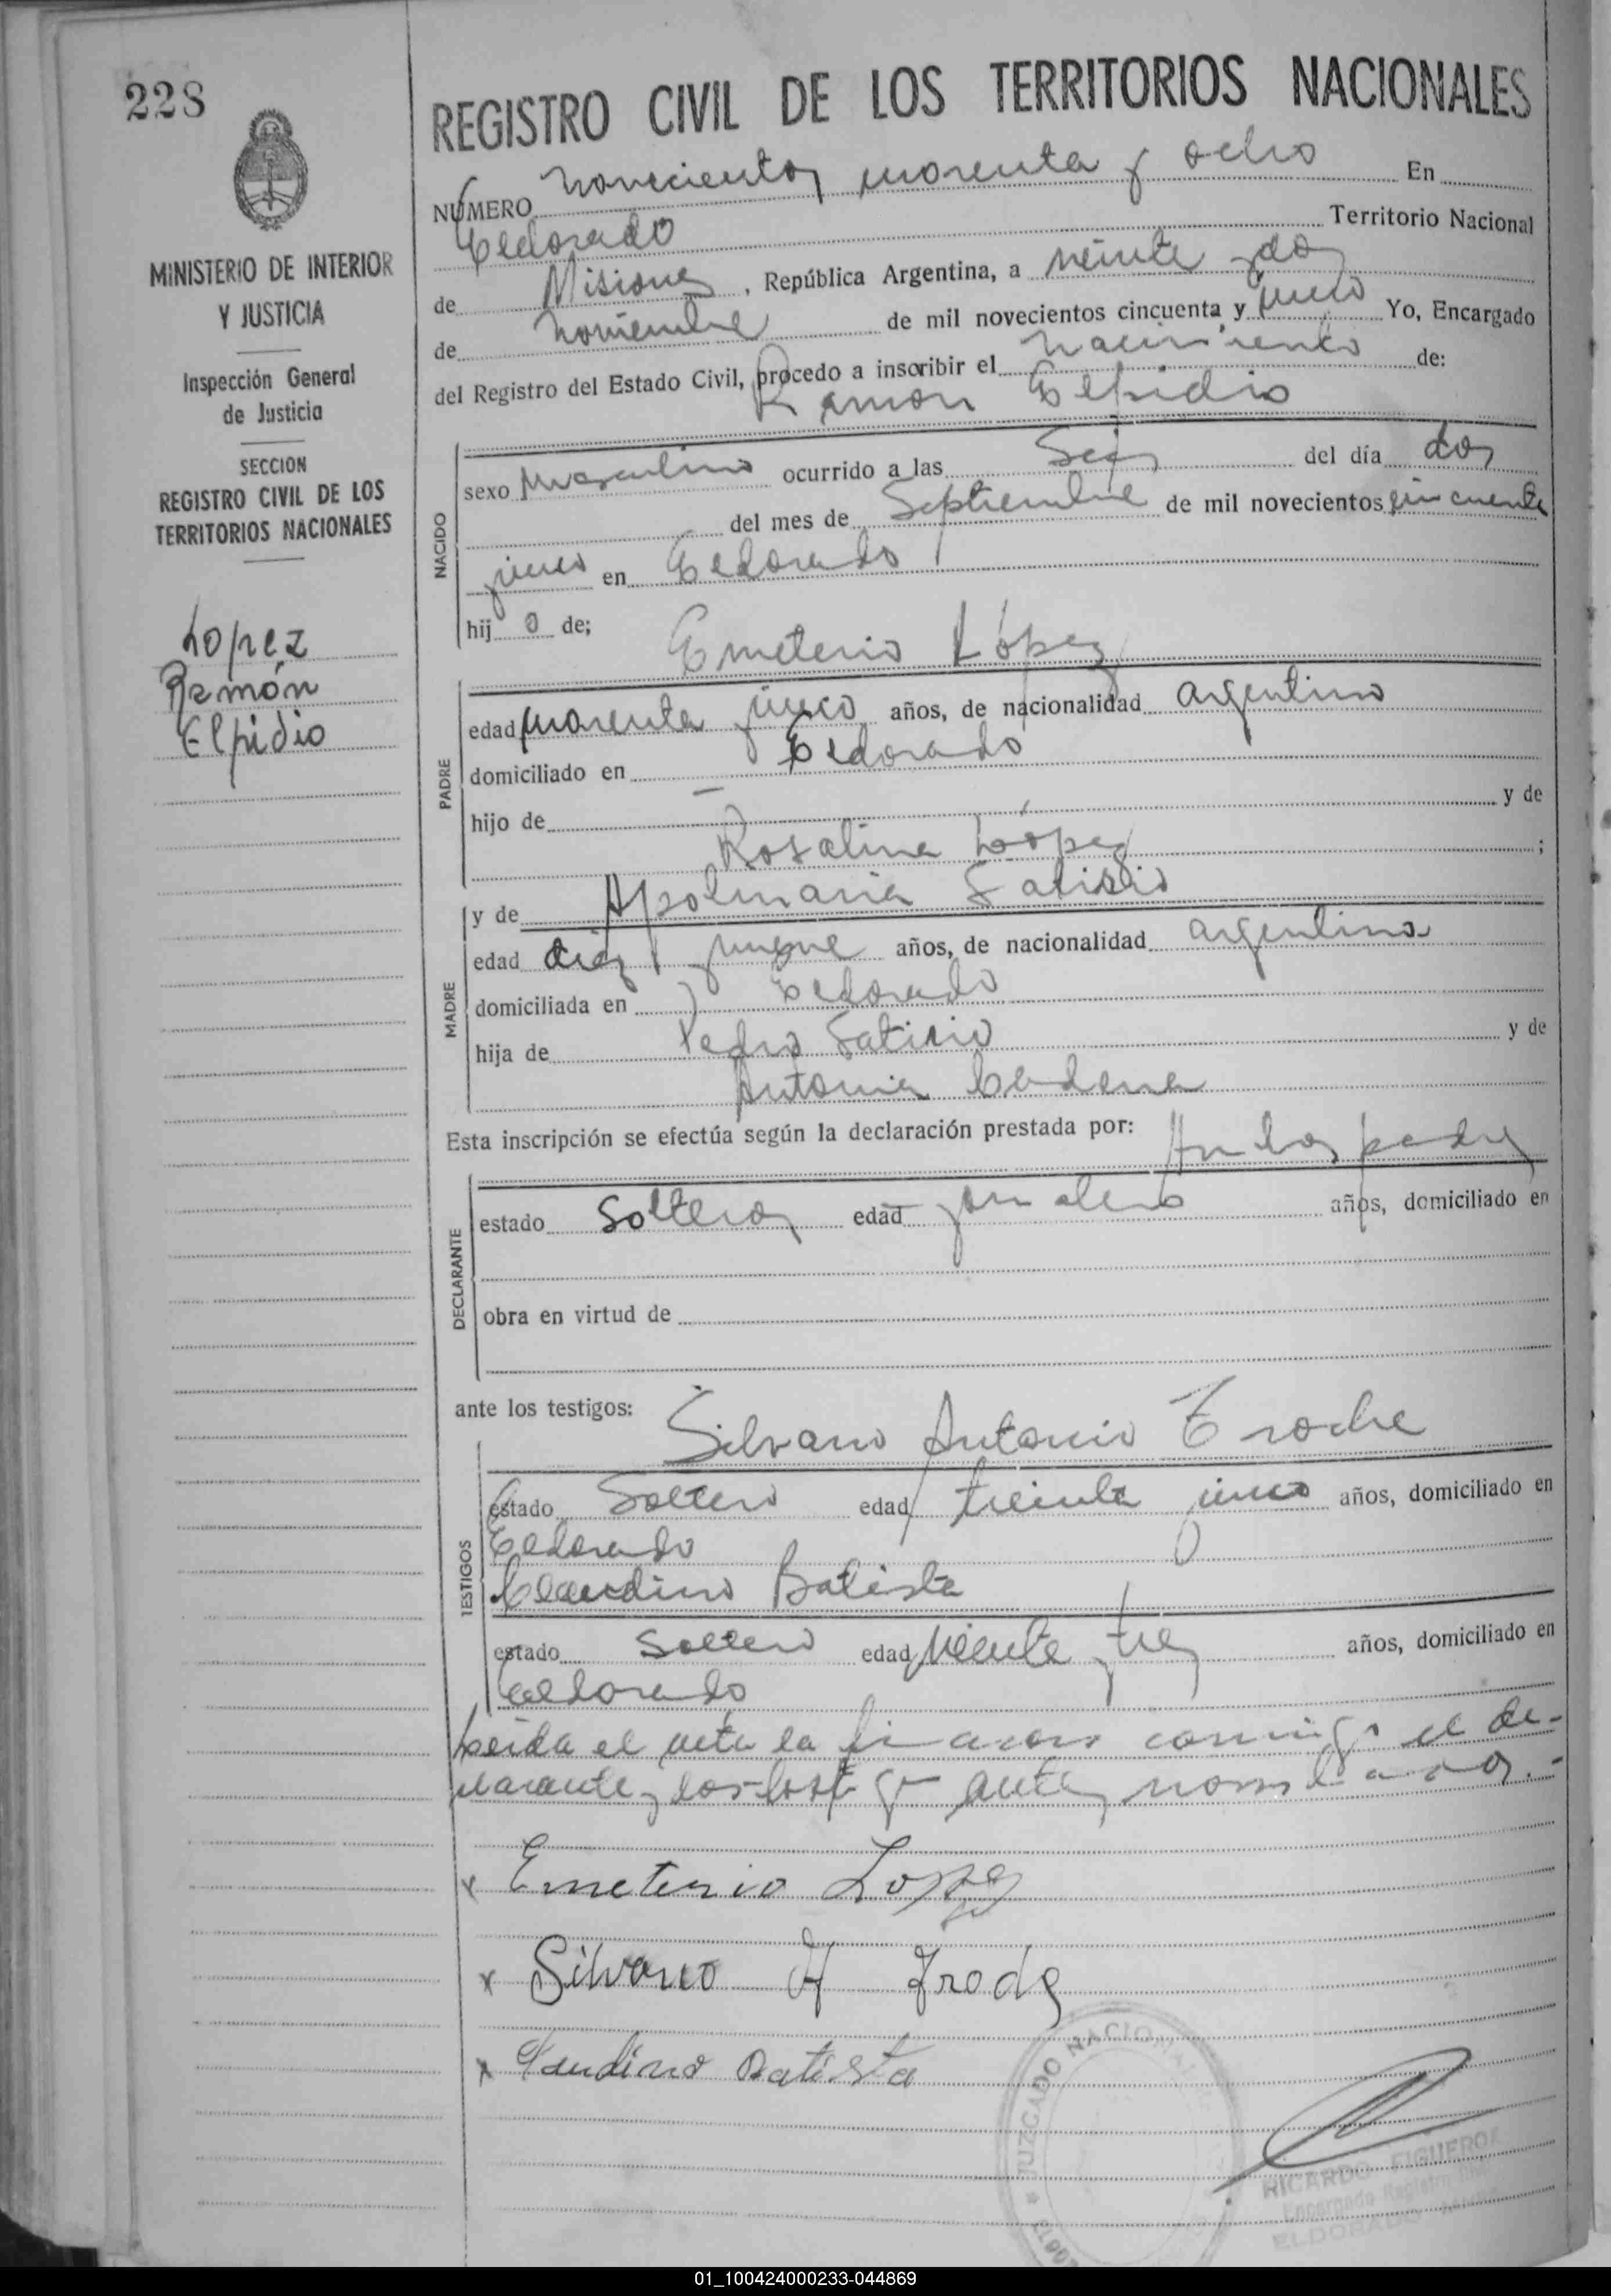 228
MINISTERIO DE INTERIOR
Y JUSTICIA
Inspección General
de Justicia
SECCION
REGISTRO CIVIL DE LOS
TERRITORIOS NACIONALES
Lopez
Ramón
Elpidio
REGISTRO CIVIL DE LOS TERRITORIOS NACIONALES
NUMERO novecientos cuarenta y ocho En
Eldorado Territorio Nacional
de Misiones, República Argentina, a veinte y dos
de noviembre de mil novecientos cincuenta y cinco Yo, Encargado
del Registro del Estado Civil, procedo a inscribir el nacimiento de:
Ramon Elpidio
NACIDO
sexo Masculino ocurrido a las Seis del día dos
del mes de Septiembre de mil novecientos cincuenta
y cinco en Eldorado
hijo de;
Emeterio López
PADRE
edad cuarenta y cinco años, de nacionalidad argentino
domiciliado en Eldorado
hijo de — y de
Rosalina López ;
y de Apolinaria
MADRE
edad diez y nueve años, de nacionalidad argentina
domiciliada en Eldorado
hija de Pedro y de
Antonia
Esta inscripción se efectúa según la declaración prestada por: Ambos padres
DECLARANTE
estado Solteros edad años, domiciliado en
obra en virtud de
ante los testigos: Silvano Antonio Troche
TESTIGOS
estado Soltero edad treinta y cinco años, domiciliado en
Eldorado
Claudino Batista
estado Soltero edad veinte y tres años, domiciliado en
Eldorado
Leida el acta la firmaron conmigo el de-
clarante y los testigos antes nombrados.-
x Emeterio Lopez
x Silvano A
x Claudino Batista
JUZGADO NACIONAL
RICARDO FIGUEROA
Encargado Registro
ELDORADO
01_100424000233-044869